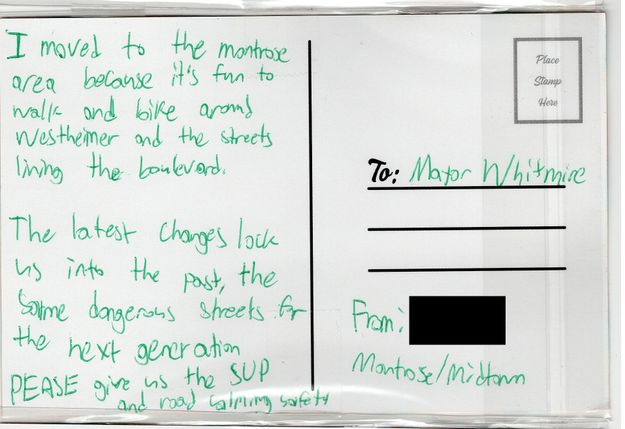 I moved to the montrose
area because it's fun to
walk and bike around
Westheimer and the streets
lining the boulevard.
The latest changes lock
us into the past, the
same dangerous streets for
the next generation
PEASE give us the SUP
and road calming safety
Place
Stamp
Here
To: Mayor Whitmire
From:
Montrose/Midtown